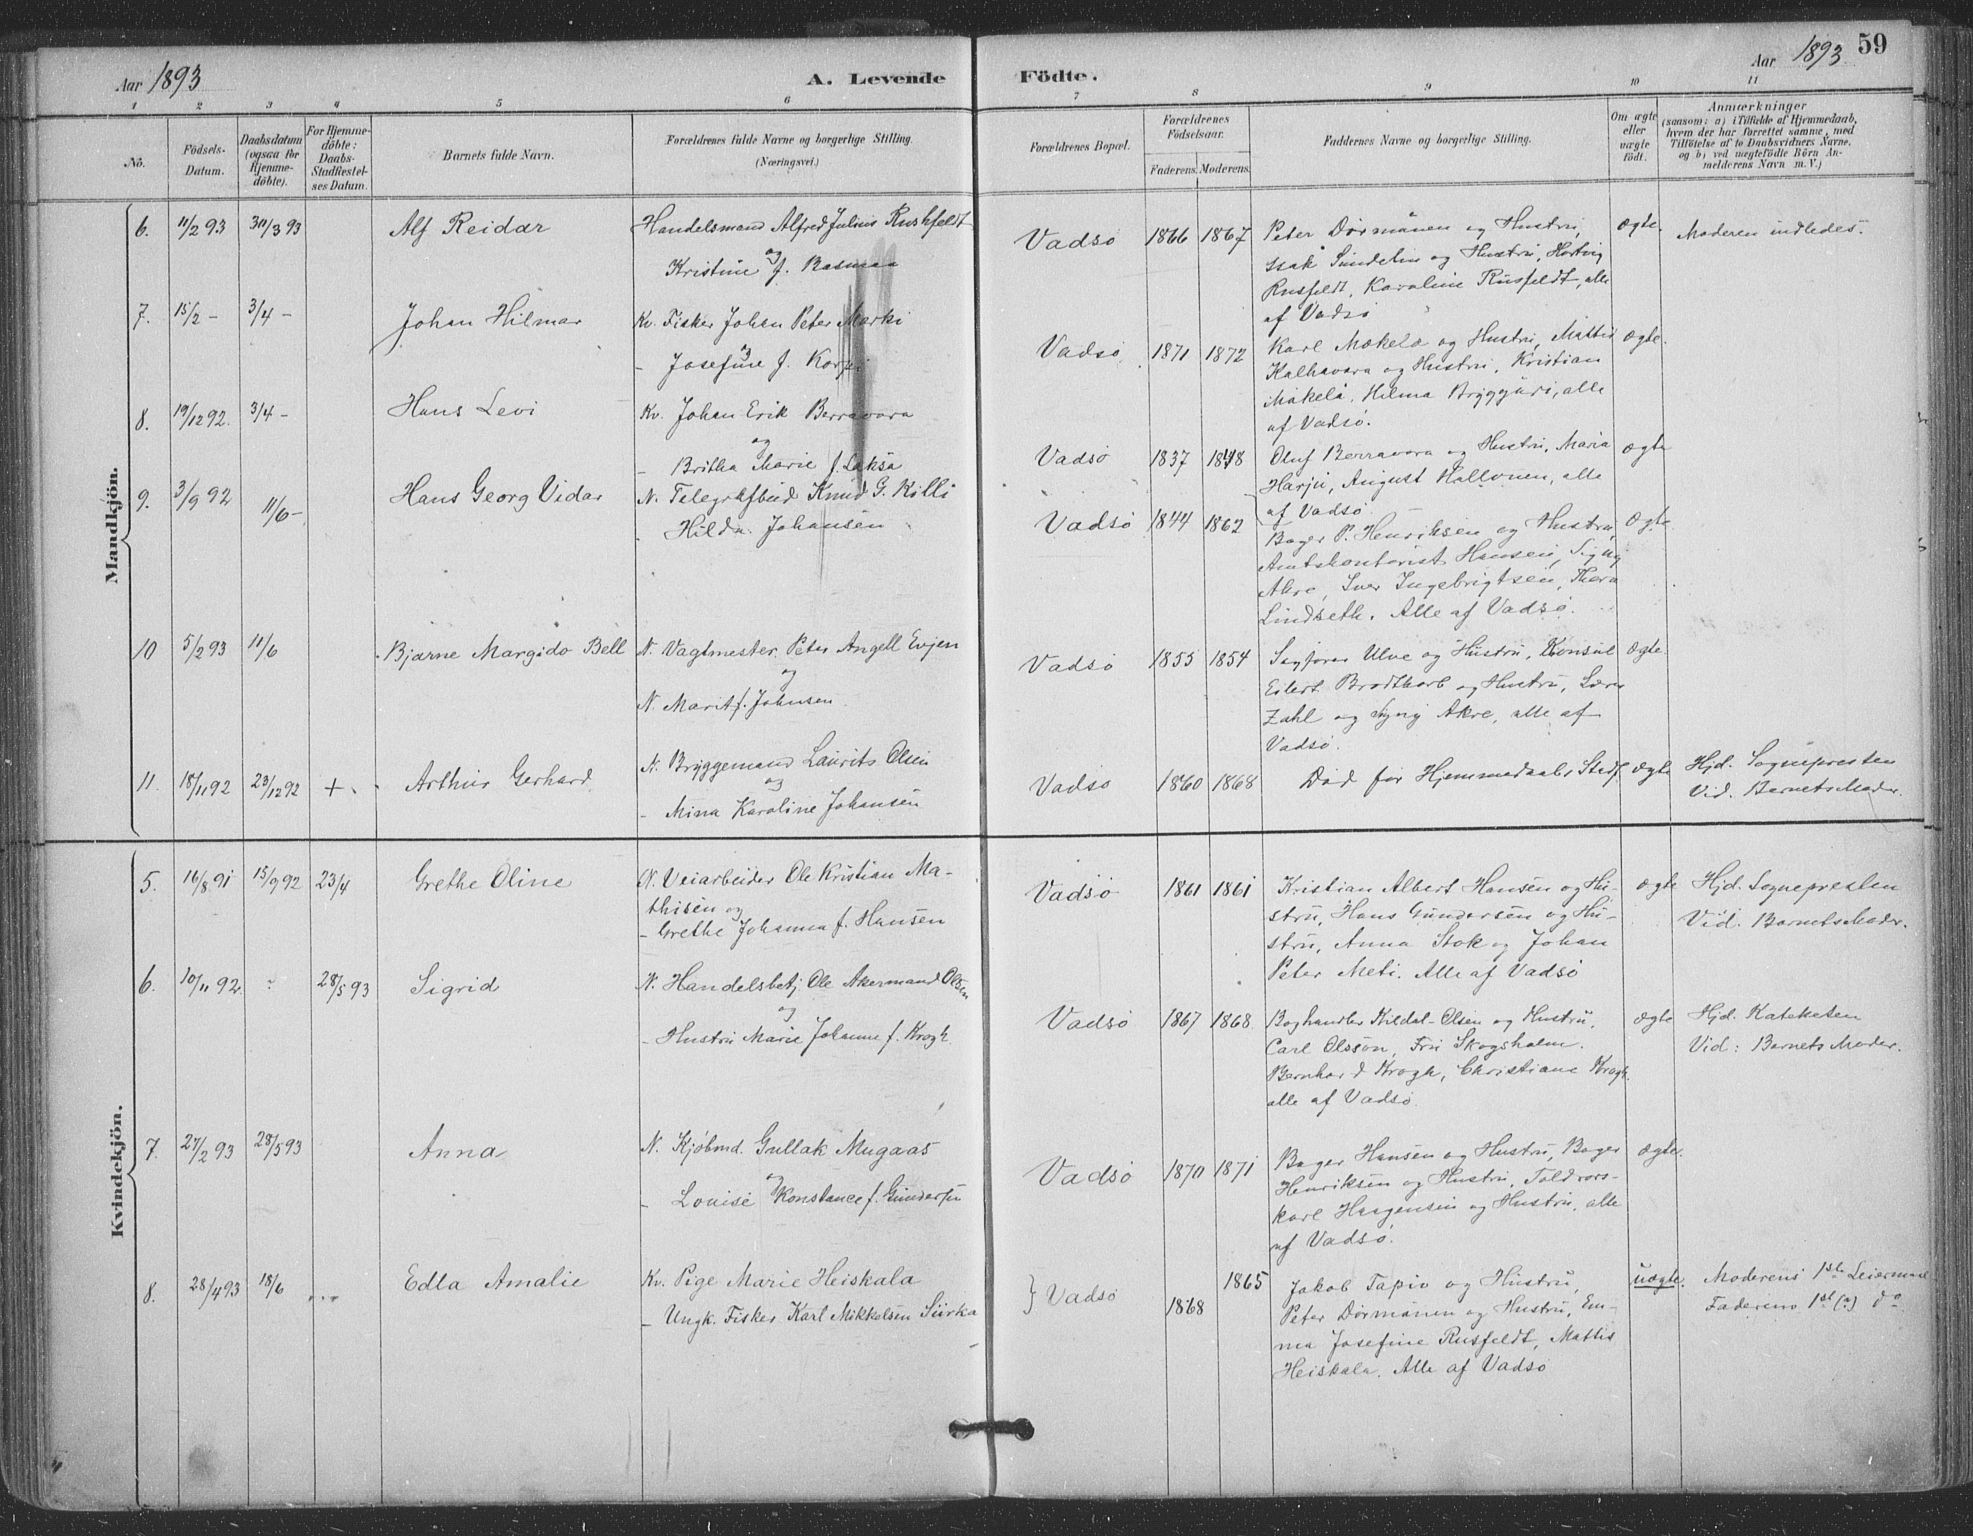 Aar 1893 A. Levende Födte. Aar 1893 59
1 2 3 4 5 6 7 8 9 10 11
No. Födsels-Datum. Daabsdatum (ogsaa for Hjemme-döbte). For Hjemme-döbte: Daabs-Stadfæstel-ses Datum. Barnets fulde Navn. Forældrenes fulde Navne og borgerlige Stilling. (Næringsvei.) Forældrenes Bopæl. Forældrenes Födselsaar. Faderens. Moderens. Faddernes Navne og borgerlige Stilling. Om ægte eller uægte födt. Anmærkninger (saasom: a) i Tilfælde af Hjemmedaab, hvem der har forrettet samme, med Tilföielse af to Daabsvidners Navne, og b) ved uægtefödte Börn An-melderens Navn m. V.)
Mandkjön.
6. 11/2 93 30/3 93 Alf Reidar Handelsmand Alfred Julius Rushfeldt
og
Kristine f. Basmaa
Vadsö 1866 1867 Peter Dörmänen og Hustru,
Isak Sundelin og Hustru, Hartvig
Rusfeldt, Karoline Rusfeldt, alle
af Vadsö
ægte. Moderen indledes.
7. 15/2 - 3/4 - Johan Hilmar Kv. Fisker Johan Peter Marki
og
- Josefine f. Korpi
Vadsö. 1871 1872 Karl Mækelä og Hustru, Mattis
Kalhavara og Hustru, Kristian
Mäkelä, Hilma Bryggäri, alle
af Vadsö.
ægte.
8. 19/12 92. 3/4 - Hans Levi Kv. Johan Erik Berravara
og
- Britha Marie f. Laksa
Vadsö 1837 1848 Oluf Berravara og Hustru, Maria
Harju, August Hallonen, alle
af Vadsö.
ægte
9. 3/9 92 11/6 - Hans Georg Vidar N. Telegrafbud Knud G. Killi
- Hilda Johansen
Vadsö 1844 1862 Bager P. Henriksen og Hustru,
Amtskontorist Hansen, Signy
Akre, Iver Ingebrigtsen, Thora
Lindseth. Alle af Vadsö.
ægte
10 5/2 93 11/6 Bjarne Margido Bell N. Vagtmester Peter Angell Evjen
og
N. Marit f. Johnsen
Vadsö 1855 1854 Sagförer Ulve og Hustru, Konsul
Eilert Brodtkorb og Hustru, Lærer
Zahl og Signy Akre, alle af
Vadsö.
ægte.
11. 18/11 92 23/12 92 + Arthur Gerhard N. Bryggemand Laurits Olsen
og
- Mina Karoline Johansen
Vadsö 1860 1868 Död för Hjemmedaabs Stadf. ægte Hjd. Sognepresten
Vid. Barnets Moder.
Kvindekjön.
5. 16/8 91 15/9 92 23/4 Grethe Oline N. Veiarbeider Ole Kristian Ma-
thisen og
- Grethe Johanna f. Hansen
Vadsö 1861 1861 Kristian Albert Hansen og Hu-
stru, Hans Gundersen og Hu-
stru, Anna Stok og Johan
Peter Meti. Alle af Vadsö
ægte Hjd. Sognepresten
Vid. Barnets Moder.
6. 10/11 92. 28/5 93 Sigrid N. Handelsbetj. Ole Akermand Olsen
og
- Hustru Marie Johanne f. Krogh
Vadsö 1867 1868 Boghandler Kildal-Olsen og Hustru,
Carl Olsson, Fru Skogsholm.
Bernhard Krogh, Christiane Krogh,
alle af Vadsö.
ægte Hjd. Kateketen
Vid: Barnets Moder.
7. 27/2 93 28/5 93 Anna N. Kjöbmd. Gullak Mugaas
og
- Louise Konstance f. Gundersen
Vadsö 1870 1871 Bager Hansen og Hustru, Bager
Henriksen og Hustru, Toldrors-
karl Haagensen og Hustru, alle
af Vadsö.
ægte.
8. 28/4 93 18/6 Edla Amalie Kv. Pige Marie Heiskala
- Ungk. Fisker Karl Mikkelsen Siirka
} Vadsö 1868 1865 Jakob Tapio og Hustru,
Peter Dörmänen og Hustru, Em-
ma Josefine Rusfeldt, Mattis
Heiskala. Alle af Vadsö
uægte. Moderens 1ste Leiermaal
Faderens 1st (?) do